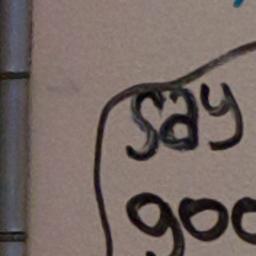 say
goo